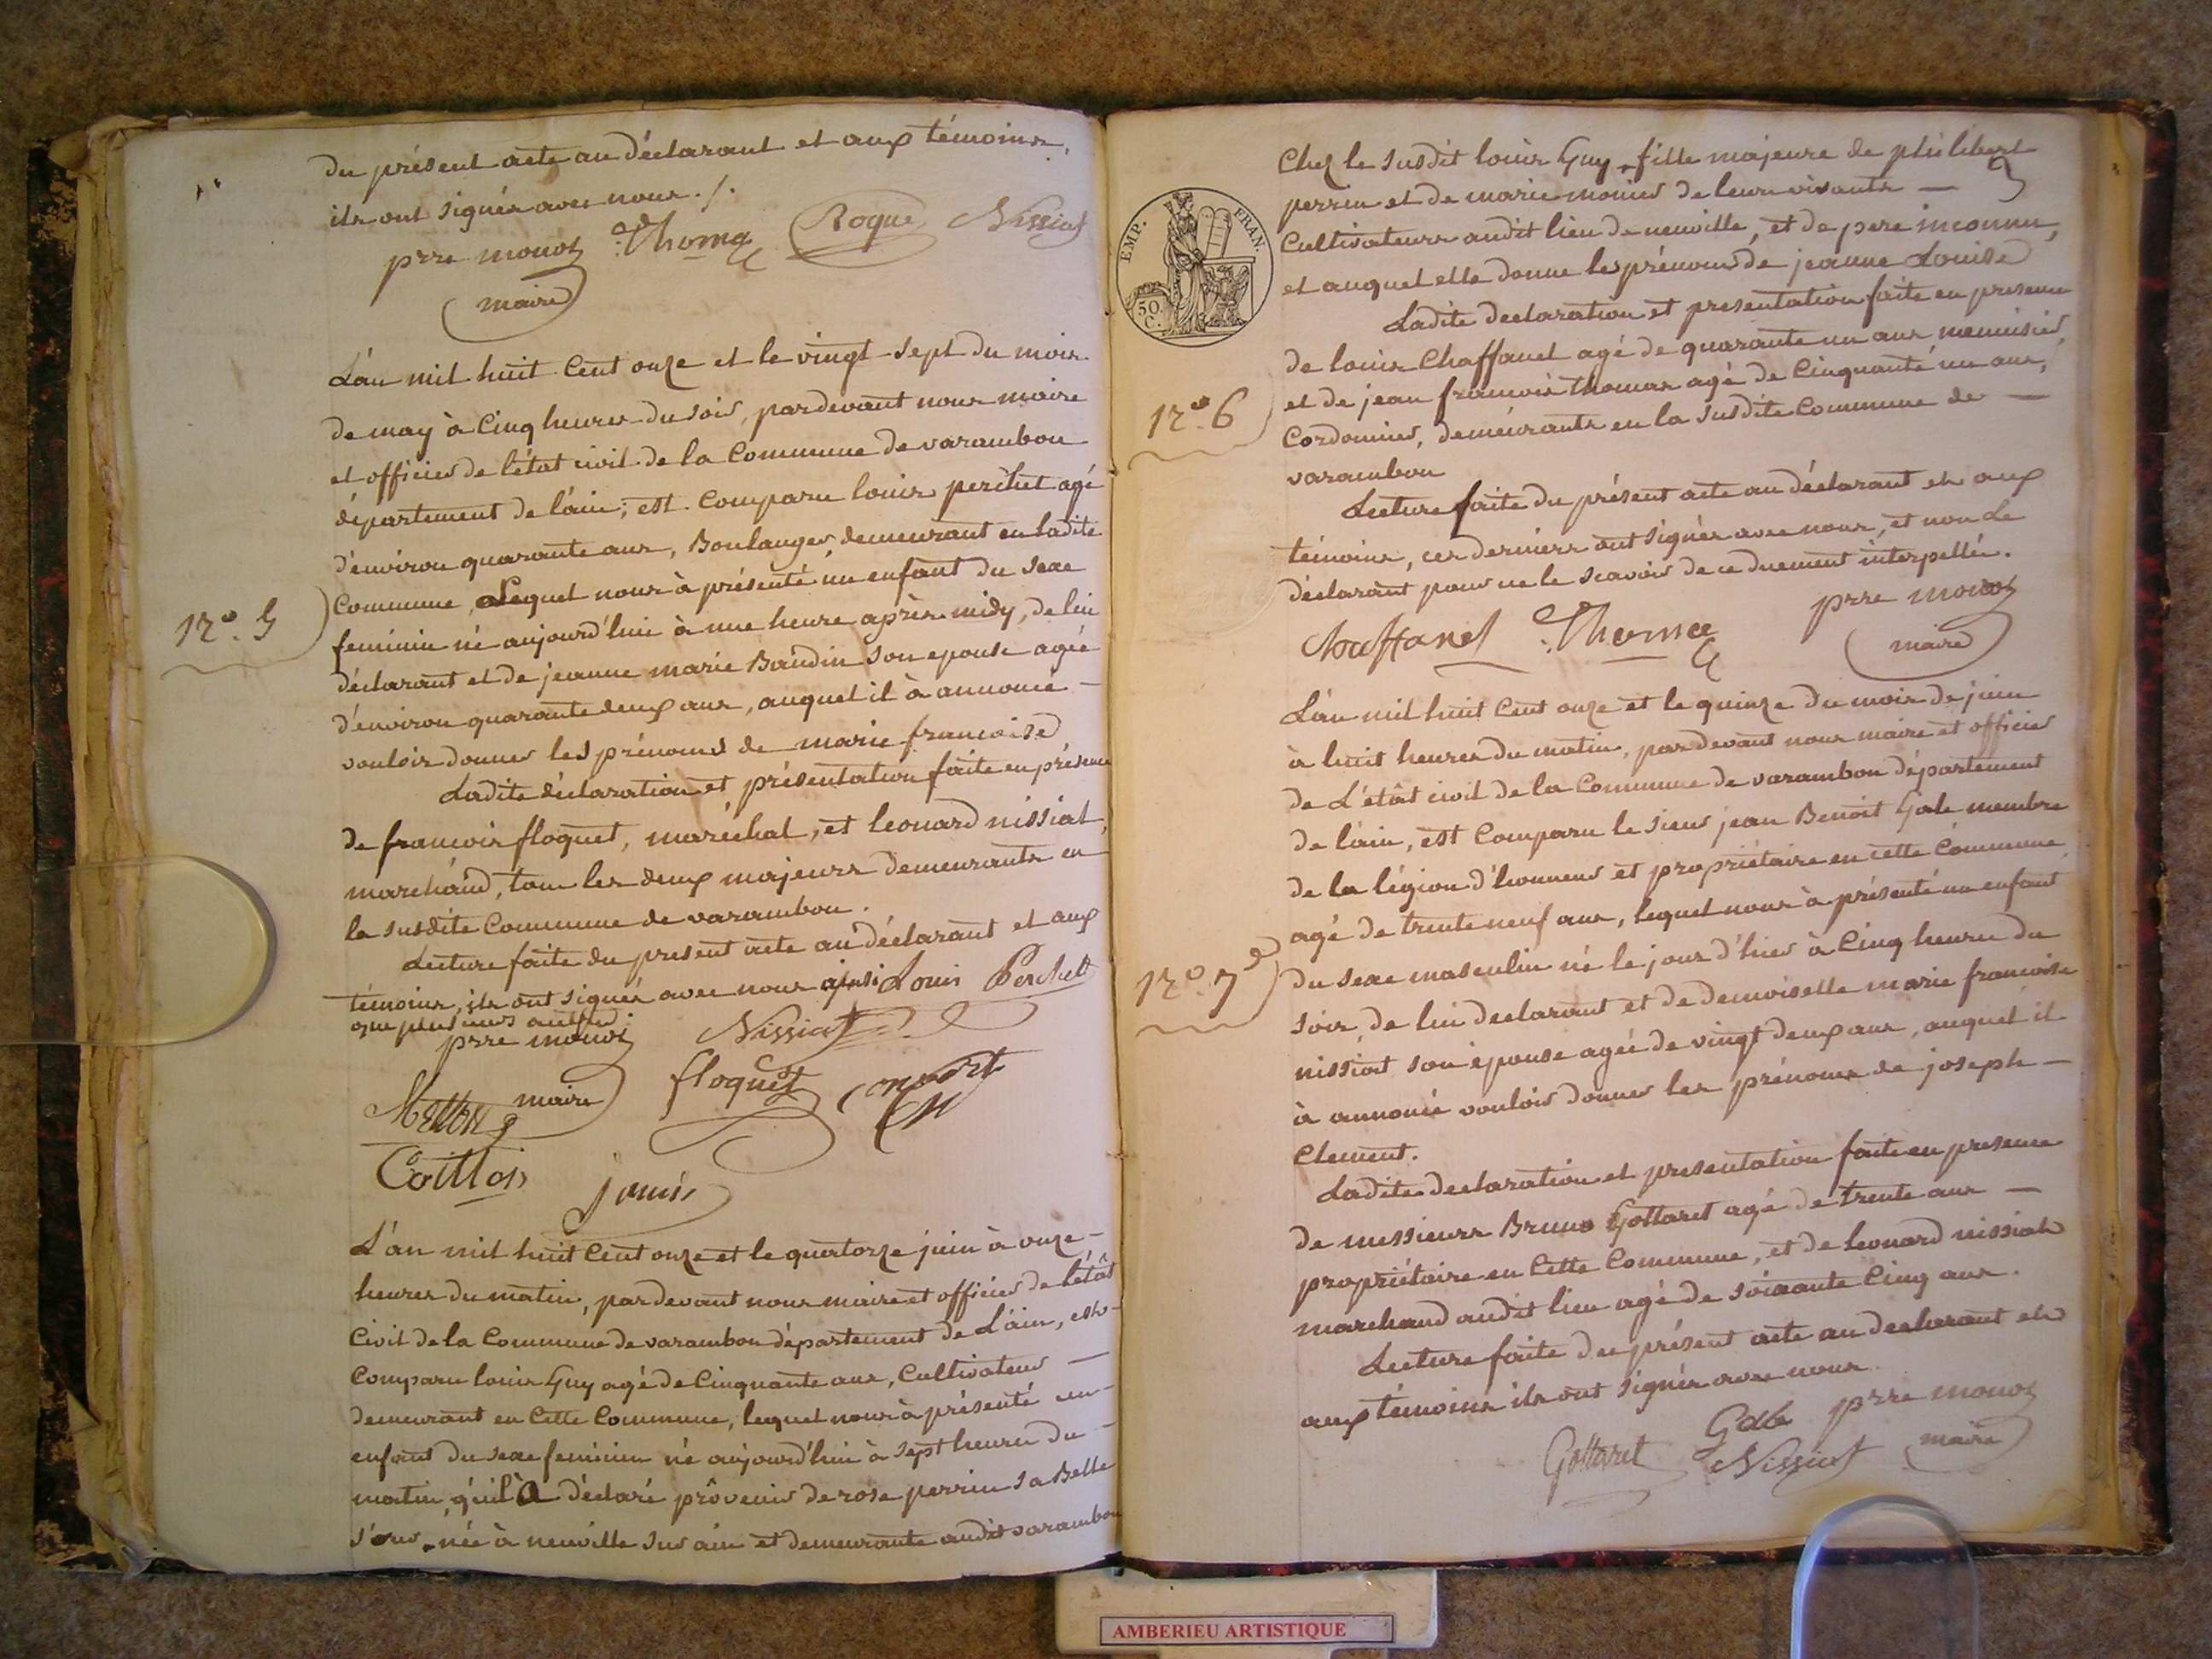 du présent acte au déclarant et aux témoins,
ils ont signés avec nous ./.
prre monoz Thoma Roque Nissiat
maire
L'an mil huit cent onze et le vingt-sept du mois
de may à cinq heures du soir, pardevant nous maire
et officier de l'état civil de la commune de varambon
département de l'ain, est comparu louis perchet agé
d'environ quarante ans, Boulanger, demeurant en ladite
commune, Lequel nous à présenté un enfant du sexe
No. 5
feminin né aujourd'hui à une heure après-midy, de lui
déclarant et de jeanne marie Baudin son epouse agée
d'environ quarante deux ans, auquel il à annoncé -
vouloir donner les prénoms de marie francoise
Ladite déclaration et présentation faite en présence
de francois floquet, maréchal, et leonard nissiat,
marchand, tous les deux majeurs demeurants en
la susdite commune de varambon.
Lecture faite du present acte au déclarant et aux
témoins, ils ont signés avec nous ainsi Louis Perchet
que plusieurs autres.
prre monoz Nissiat
maire floquet Convert
Coillon
L'an mil huit cent onze et le quatorze juin à onze -
heures du matin, pardevant nous maire et officier de l'étât
civil de la commune de varambon département de L'ain, est -
comparu louis Guy agé de cinquante ans, cultivateur —
demeurant en cette commune, lequel nous à présenté un -
enfant du sexe feminin né aujourd'hui à sept heures du -
matin, qu'il a déclaré provenir de rose perrin sa Belle
s'œur, née à neuville sur ain et demeurante audit varambon
EMP. FRAN.
50 C.
chez le susdit louis Guy, fille majeure de philibert
perrin et de marie monier de leurs vivants —
cultivateurs audit lieu de neuville, et de pere inconnu,
et auquel elle donne les prénoms de jeanne Louise
Ladite declaration et presentation faite en presence
de louis Chaffanel agé de quarante un ans menuisier,
No. 6
et de jean francois thomas agé de cinquante un ans,
cordonnier, demeurants en la susdite commune de —
varambon
Lecture faite du présent acte au déclarant et aux
témoins, ces derniers ont signés avec nous, et non Le
déclarant pour ne le scavoir de ce duement interpellé.
Chaffanel Thoma prre monoz
maire
L'an mil huit cent onze et le quinze du mois de juin
à huit heures du matin, pardevant nous maire et officier
de L'étât civil de la commune de varambon département
de l'ain, est comparu le sieur jean Benoit Gale membre
de la légion d'honneur et propriétaire en cette commune
agé de trente neuf ans, lequel nous à présenté un enfant
No. 7
du sexe masculin né le jour d'hier à cinq heures du
soir, de lui declarant et de demoiselle marie francoise
nissiat son épouse agée de vingt deux ans, auquel il
à annoncé vouloir donner les prénoms de joseph —
clement.
Ladite declaration et presentation faite en presence
de messieurs Bruno Gottaret agé de trente ans —
propriétaire en cette commune, et de leonard nissiat
marchand audit lieu agé de soixante cinq ans.
Lecture faite du présent acte au declarant et
aux témoins ils ont signés avec nous
Gale prre monoz
Gottaret Nissiat maire
AMBERIEU ARTISTIQUE